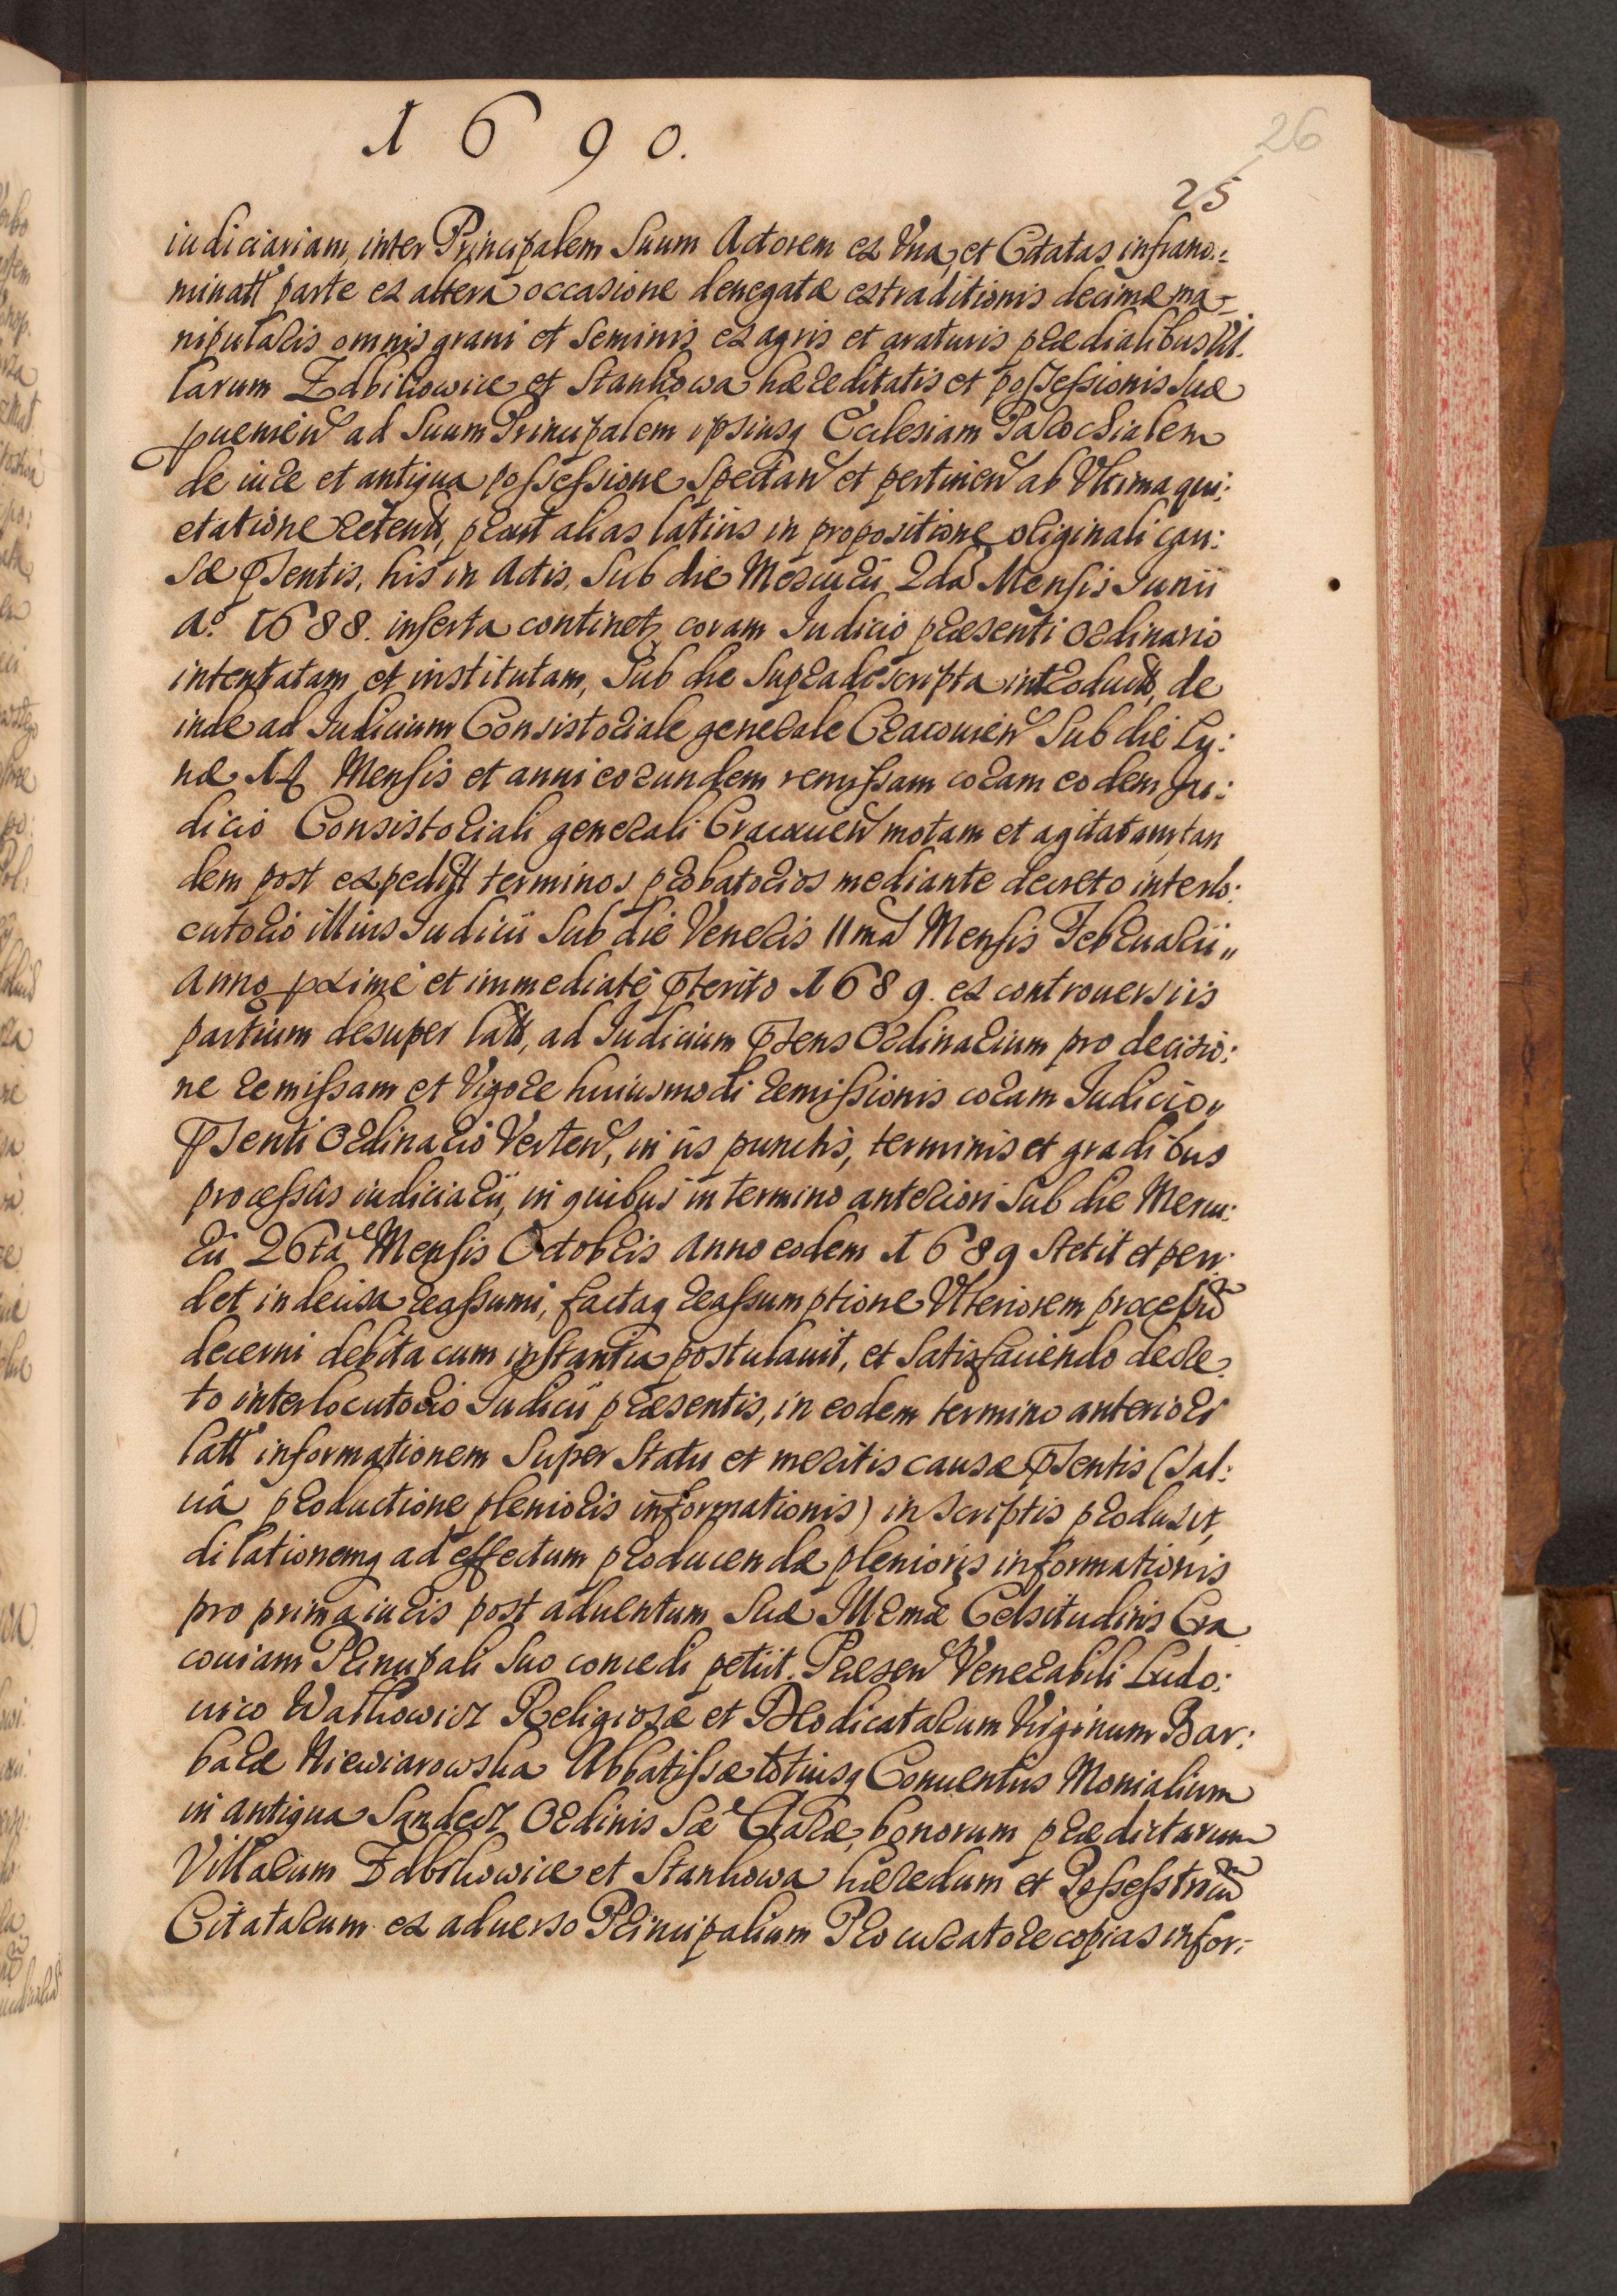 1690.
26
25
iudiciariam, inter Principalem Suum Actorem ex Vna, et Citatas infrano:
minatt parte ex altera occasione denegatæ extraditionis decimæ ma-
nipularis omnis grani et Seminis ex agris et araturis prædialibus Vil.
larum Zdbikowice et Stankowa hæreditatis et possessionis Suæ
puenien ad Suum Principalem ipsiusq Ecclesiam Parochialem
de iure et antiqua possessione Spectan et pertinen ab Vltima qui:
etatione retent, prout alias latius in propositione originali cau:
sæ pñsentis, his in Actis, Sub die Mercurii 2da Mensis Iunii
Aº 1688. inserta continet, coram Iudicio præsenti Ordinario
intentatam et institutam, Sub die Supradescripta introduct, de
inde ad Iudicium Consistoriale generale Cracouien Sub die Lu:
næ 14 Mensis et anni eorundem remissam coram eodem Iu:
dicio Consistoriali generali Cracouien motam et agitatam, tan
dem post expeditt terminos probatorios mediante decreto interlo:
cutorio illius Iudicii Sub die Veneris 11ma Mensis Februarii
anno proxime et immediate pterito 1689. ex controuersiis
partium desuper latt, ad Iudicium psens Ordinarium pro decisio:
ne remissam et Vigore huiusmodi remissionis coram Iudicio
psenti Ordinario Verten, in iis punctis, terminis et gradibus
processûs iudiciarii, in quibus in termino anteriori Sub die Mercu:
rii 26ta Mensis Octobris Anno eodem 1689 Stetit et pen:
det indecisa reassumi, factaq reassumptione Vlteriorem processũ
decerni debita cum instantia postulauit, et Satisfaciendo decre
to interlocutorio Iudicii præsentis, in eodem termino anteriori
latt informationem Super Statu et meritis causæ psentis (Sal:
uâ productione plenioris informationis) in scriptis produxit,
dilationemq ad effectum producendæ plenioris informationis
pro prima iuris post aduentum Suæ Illrmæ Celsitudinis Cra
couiam Principali Suo concedi petiit. Præsen Venerabili Ludo:
uico Walkowicz Religiosæ et Deodicatarum Virginum Bar:
baræ Niewiarowska Abbatissæ totiusq Conuentus Monialium
in antiqua Sandecz Ordinis Sæ Claræ, bonorum prædictarum
Villarum Zdbikowice et Stankowa hæredum et Possesstricũ
Citatarum ex aduerso Principalium Procuratore copias infor: